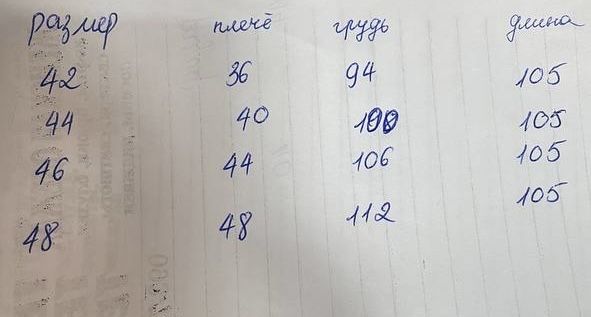 размер плечё грудь длина
42 36 94 105
44 40 100 105
46 44 106 105
48 48 112 105